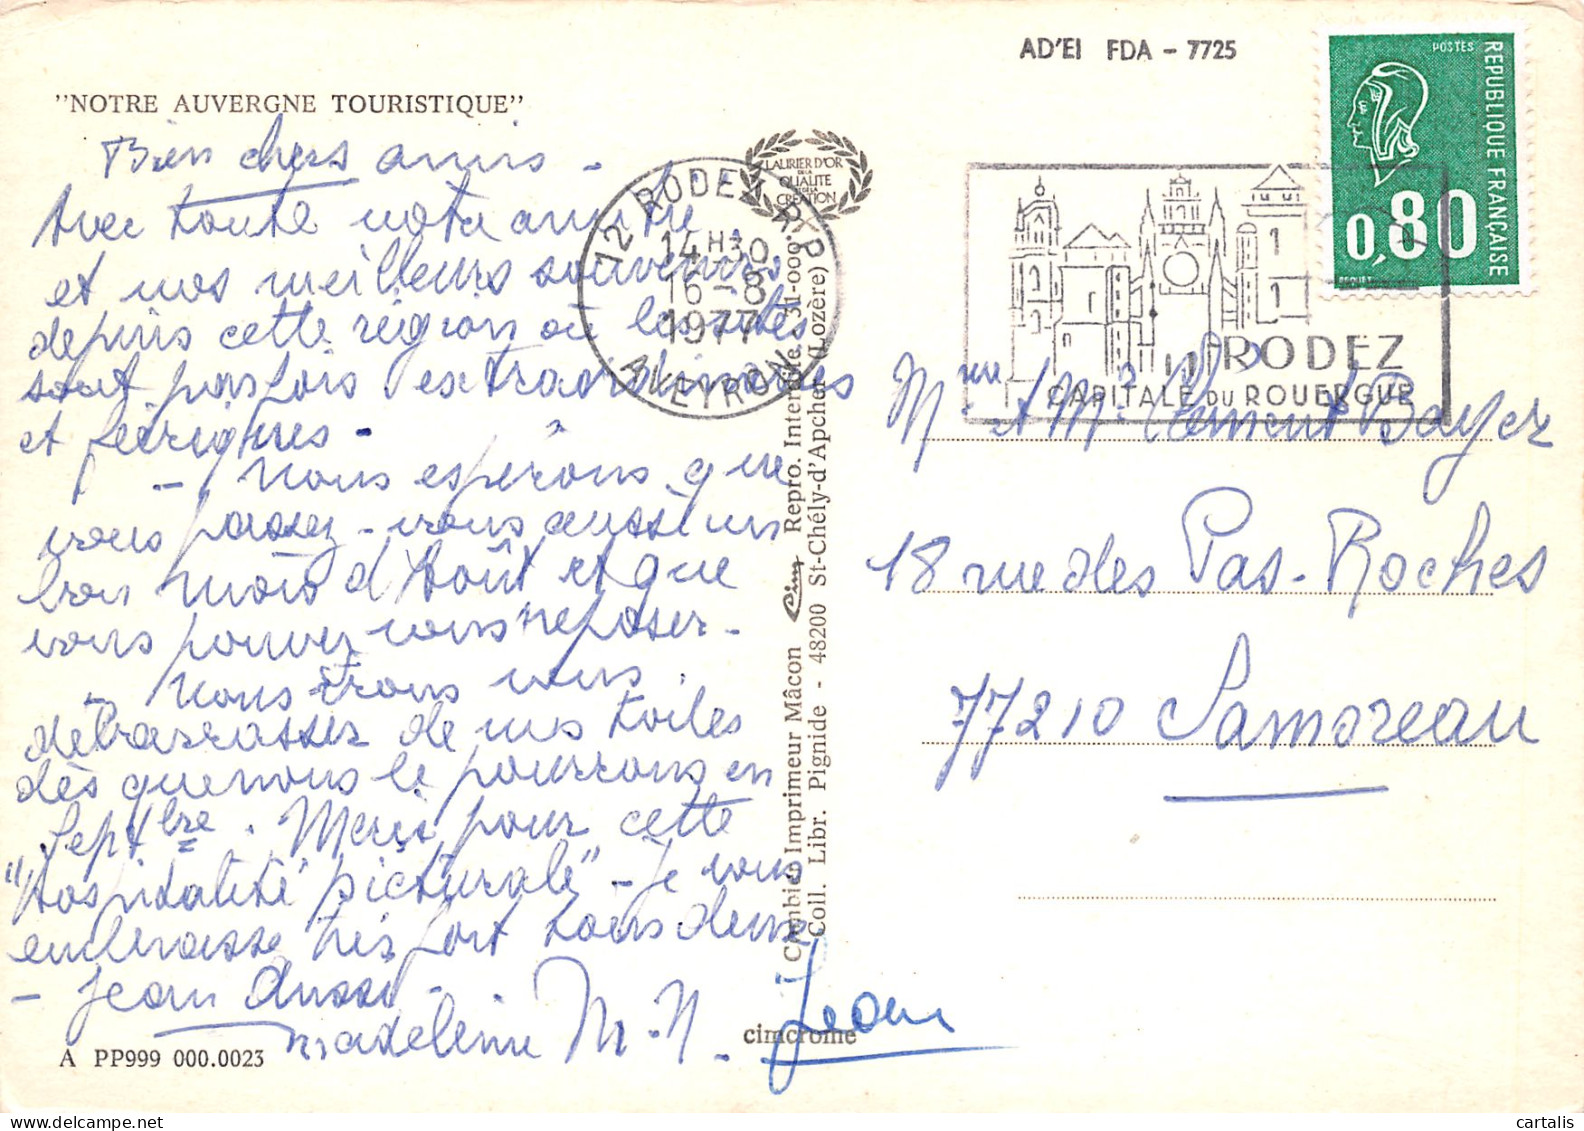 "NOTRE AUVERGNE TOURISTIQUE"
Bien chers amis -
Avec toute notre amitié
et nos meilleurs souvenirs
depuis cette région où les sites
sont parfois extraordinaires
et féeriques -
- Nous espérons que
vous passez - vous aussi un
bon mois d'Août et que
vous pouvez vous reposer -
Nous irons vous
débarrasser de nos toiles
dès que nous le pourrons en
Septbre. Merci pour cette
"Hospitalité picturale" - Je vous
embrasse très fort tous deux
- Jean Aussi -
Madeleine M. N.
Jean
A PP999 000.0023
cimcrome
LAURIER D'OR
DE LA
QUALITE
ET DE LA
CREATION
12 RODEZ R.P.
14H30
16-8
1977
AVEYRON
Combier Imprimeur Mâcon Cim Repro. Interdite 31-000
Coll. Libr. Pignide - 48200 St-Chély-d'Apcher (Lozère)
AD'EI FDA - 7725
POSTES
REPUBLIQUE FRANÇAISE
0,80
RODEZ
CAPITALE DU ROUERGUE
Mme et Mr Clément Bayer
18 rue des Pas-Roches
77210 Samoreau
cartalis.com